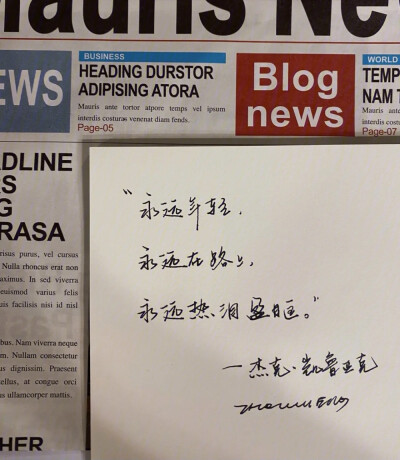 Mauris Ne
EWS
BUSINESS
HEADING DURSTOR
ADIPISING ATORA
Mauris ante tortor atpore temps vel ipsum
interdis costuras venenat diam fends.
Page-05
Blog
news
WORLD
TEMP
NAM T
Mauris ante
Page-07
ADLINE
RS
G
RASA
risus purus, vel cursus
Nulla rhoncus erat non
maximus. In sed viverra
euismod varius felis
uis facilisis nisi id nisl
bus. Nam viverra neque
m. Nullam consectetur
us dignissim. Praesent
tellus, at congue orci
us ullamcorper mattis.
HER
“永远年轻,
永远在路上,
永远热泪盈眶。”
—杰克·凯鲁亚克